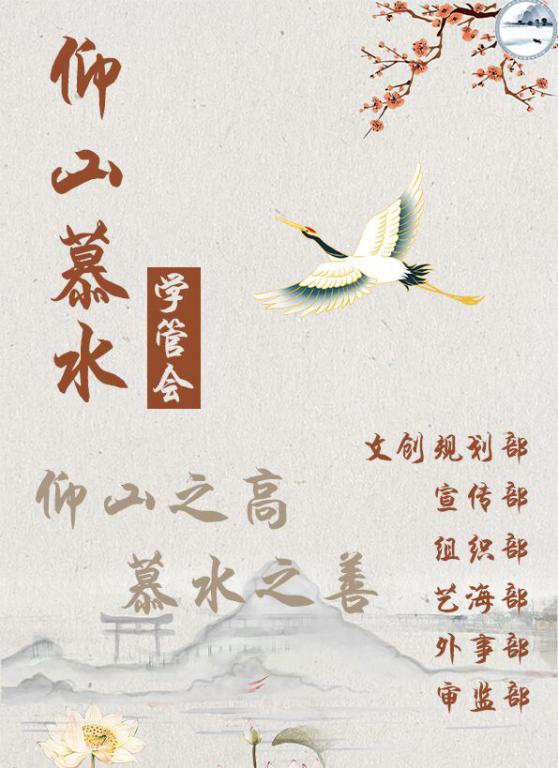 仰山慕水
学管会
仰山之高
慕水之善
文创规划部
宣传部
组织部
艺海部
外事部
审监部